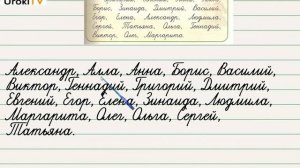 UrokiTV
Борис, Зинаида, Дмитрий, Василий,
Егор, Елена, Александр, Людмила,
Сергей, Татьяна, Ольга, Геннадий,
Виктор, Олег, Маргарита.
Александр, Алла, Анна, Борис, Василий,
Виктор, Геннадий, Григорий, Дмитрий,
Евгений, Егор, Елена, Зинаида, Людмила,
Маргарита, Олег, Ольга, Сергей,
Татьяна.